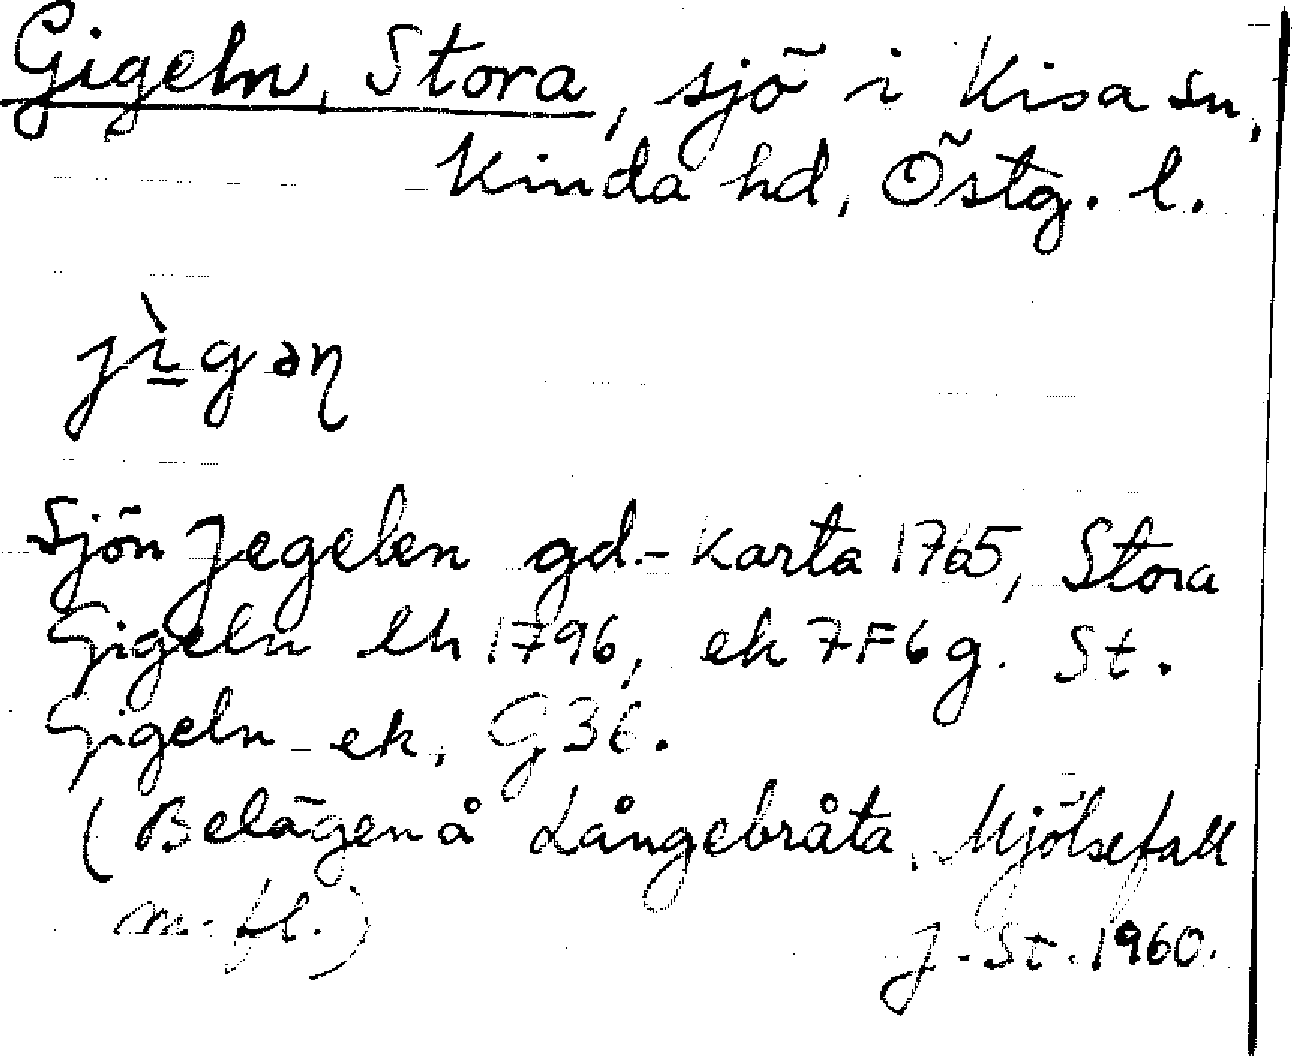 Gigeln, Stora, sjö i Kisa sn,
Kinda hd, Östg. l.
jı̷̀gəɳ
Sjön Jegelen gd.-karta 1765, Stora
Gigeln lh 1796, ek 7F6g. St.
Gigeln ek, G36.
(Belägen å Långebråta, Mjölsefall
m. fl.)
J. St. 1960.